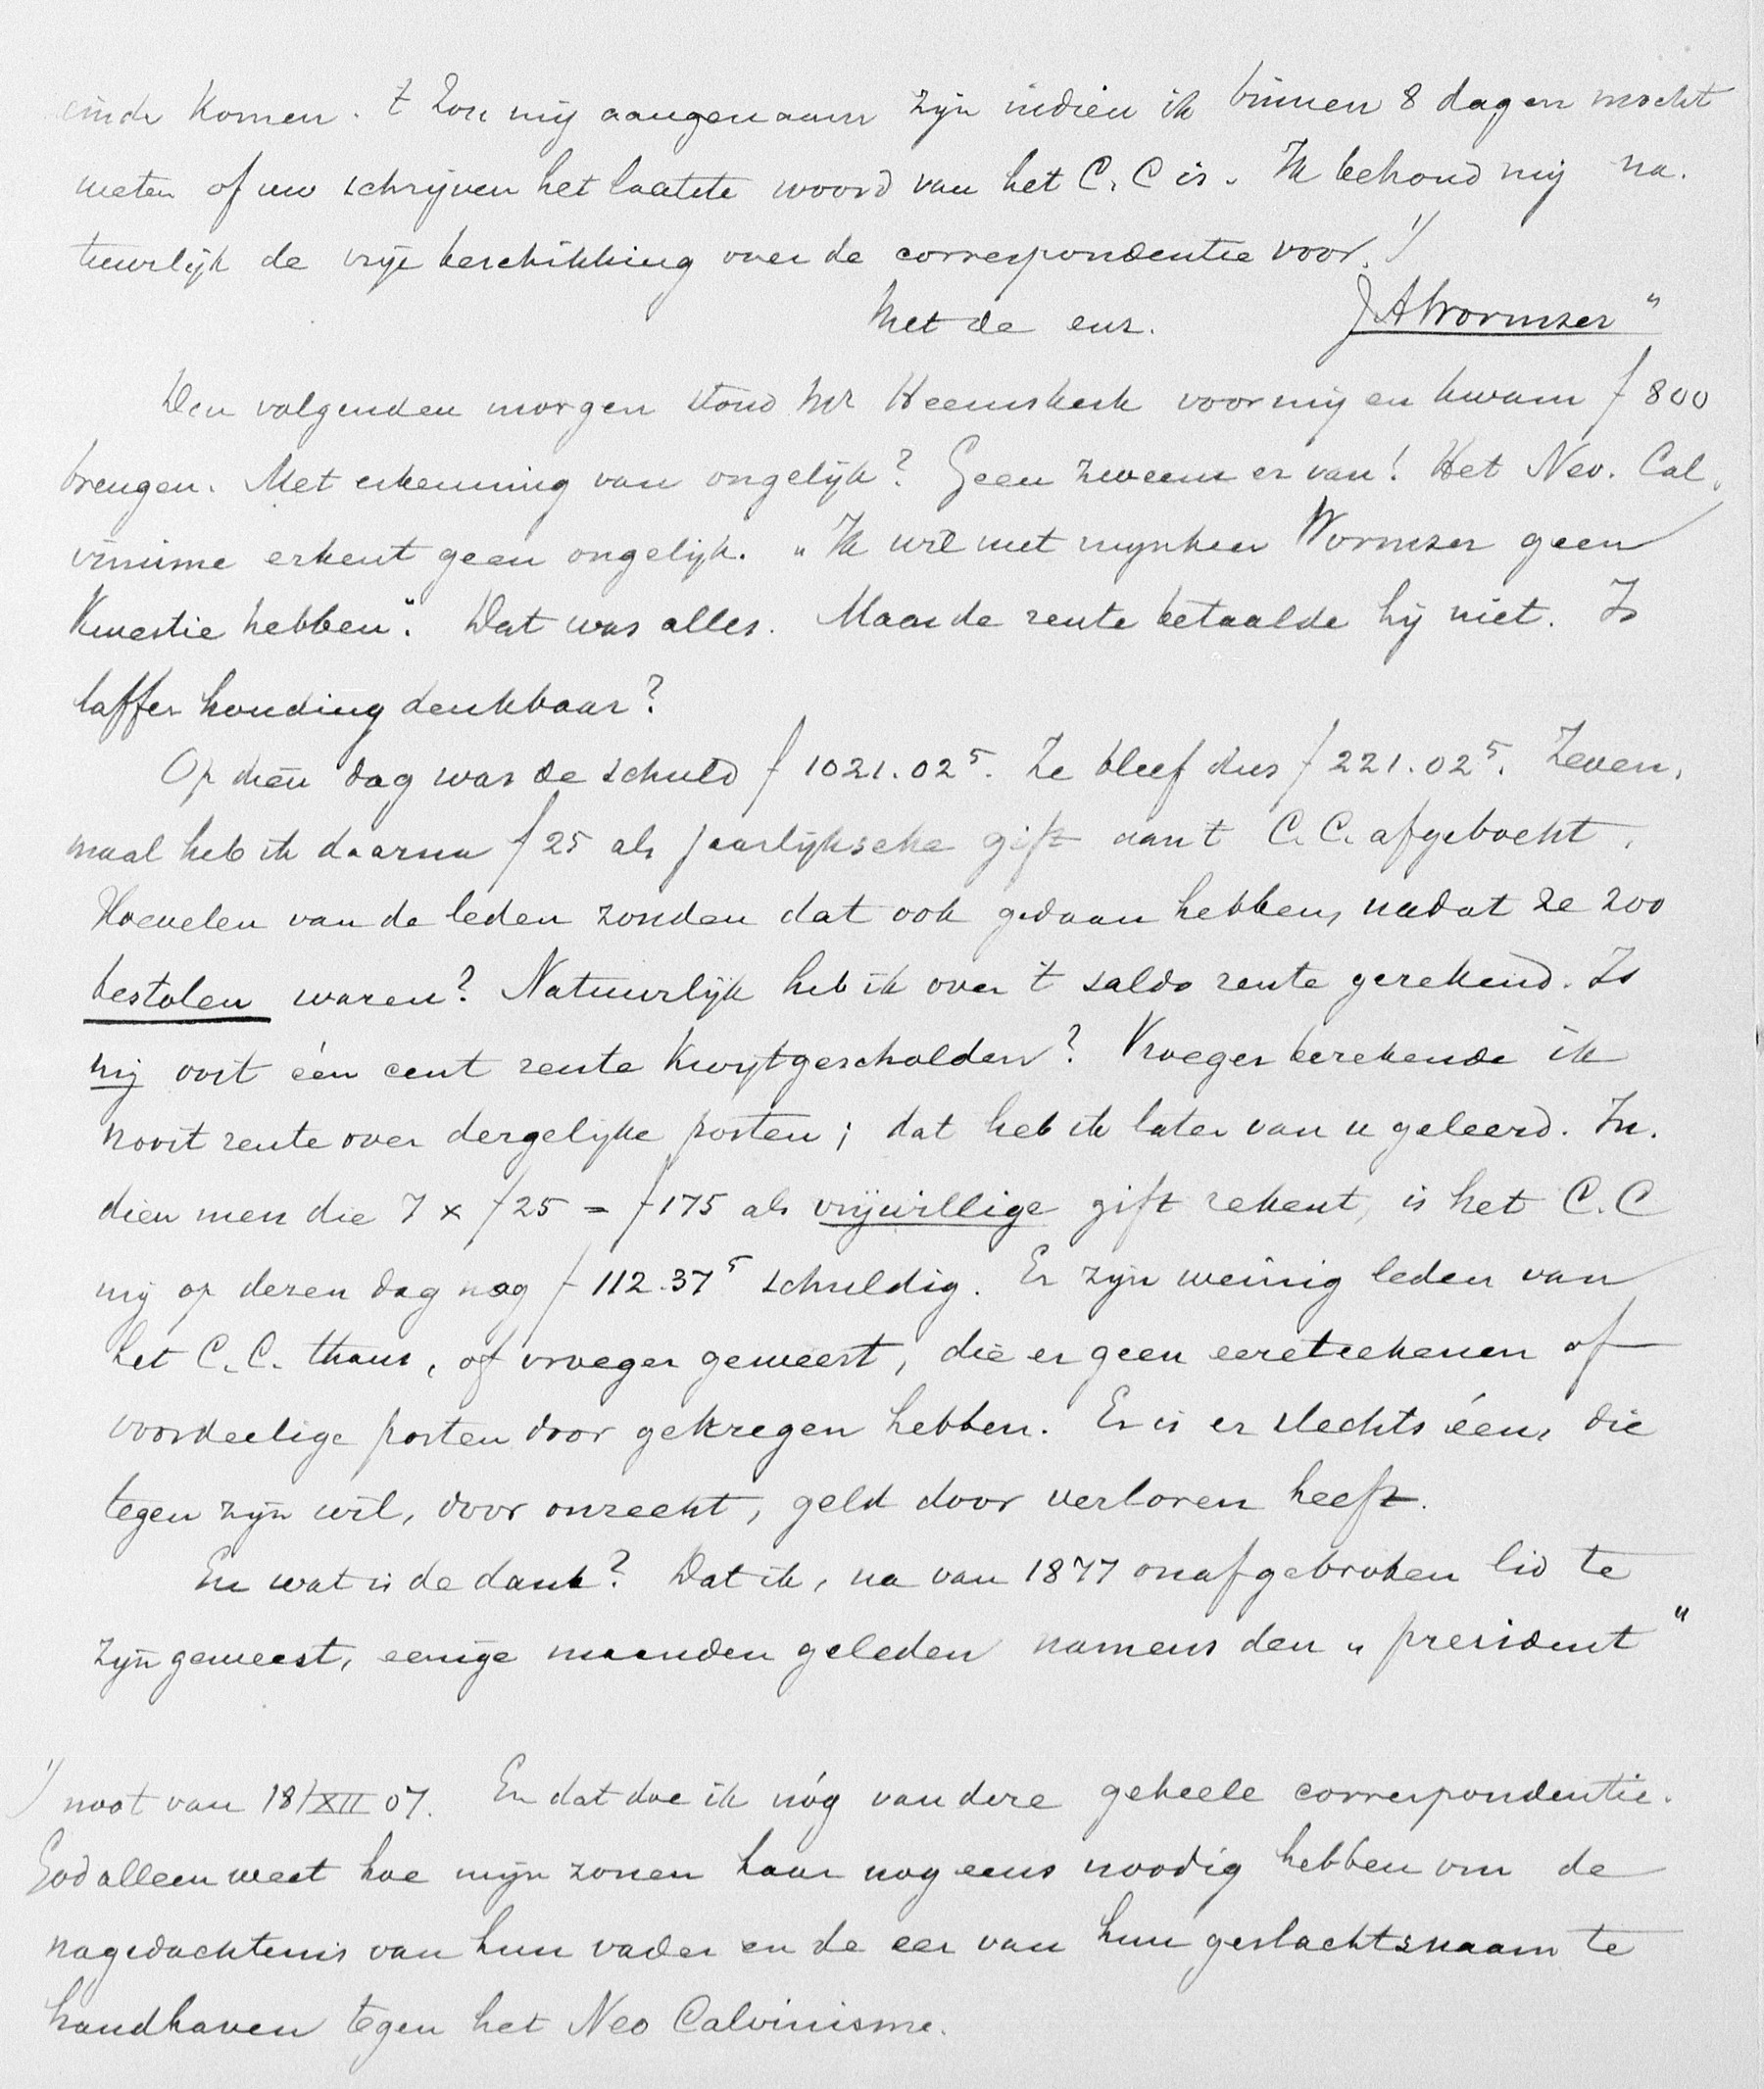 einde komen. 't Zou mij aangenaam zijn indien ik binnen 8 dagen mocht
weten of uw schrijven het laatste woord van het C.C is. Ik behoud mij na-
tuurlijk de vrije beschikking over de correspondentie voor. 1)
Met de enz. J A Wormser"
Den volgenden morgen stond Mr Heemskerk voor mij en kwam f 800
brengen. Met erkenning van ongelijk? Geen zweem er van! Het Neo-Cal-
vinisme erkent geen ongelijk. „Ik wil met mijnheer Wormser geen
kwestie hebben". Dat was alles. Maar de rente betaalde hij niet. Is
laffer houding denkbaar?
Op dien dag was de schuld f 1021.02⁵. Ze bleef dus f 221.02⁵. Zeven-
maal heb ik daarna f 25 als jaarlijksche gift aan 't C.C. afgeboekt.
Hoevelen van de leden zouden dat ook gedaan hebben, nadat ze zoo
bestolen waren? Natuurlijk heb ik over 't saldo rente gerekend. Is
mij ooit één cent rente kwijtgescholden? Vroeger berekende ik
nooit rente over dergelijke posten; dat heb ik later van u geleerd. In-
dien men die 7 x f 25 = f 175 als vrijwillige gift rekent, is het C.C
mij op dezen dag nog f 112.37⁵ schuldig. Er zijn weinig leden van
het C.C. thans, of vroeger geweest, die er geen eereteekenen of
voordeelige posten door gekregen hebben. Er is er slechts één, die
tegen zijn wil, door onrecht, geld door verloren heeft.
En wat is de dank? Dat ik, na van 1877 onafgebroken lid te
zijn geweest, eenige maanden geleden namens den „president"
1) noot van 18/XII 07. En dat doe ik nóg van deze geheele correspondentie.
God alleen weet hoe mijn zonen haar nog eens noodig hebben om de
nagedachtenis van hun vader en de eer van hun geslachtsnaam te
handhaven tegen het Neo Calvinisme.